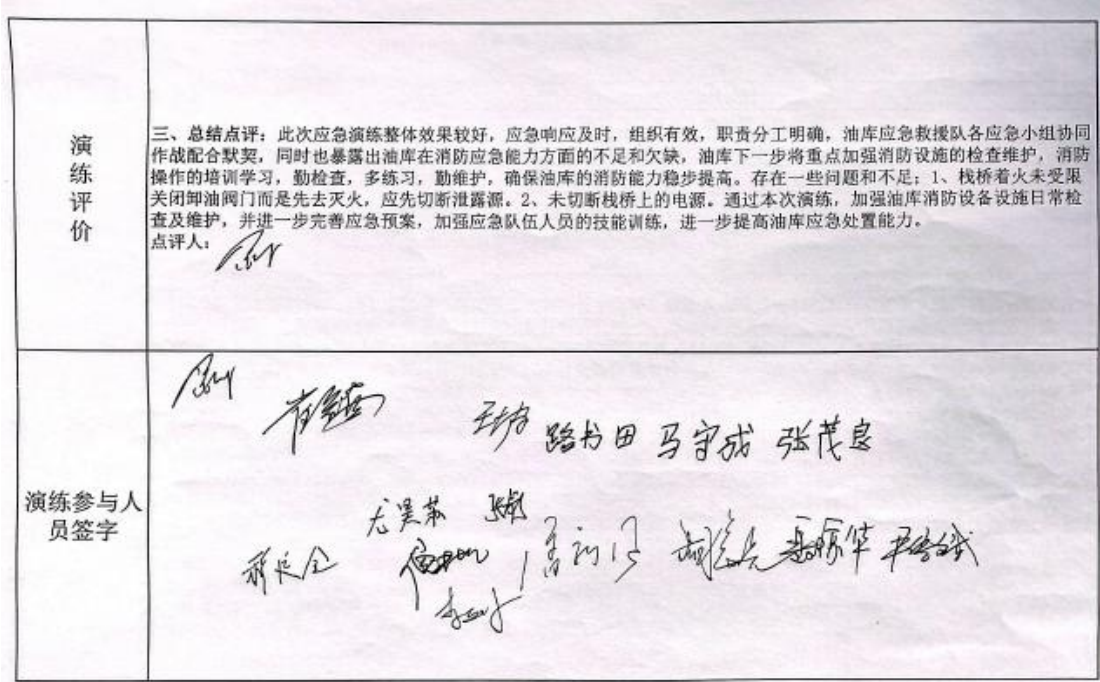 演练评价
三、总结点评：此次应急演练整体效果较好，应急响应及时，组织有效，职责分工明确，油库应急救援队各应急小组协同
作战配合默契，同时也暴露出油库在消防应急能力方面的不足和欠缺，油库下一步将重点加强消防设施的检查维护，消防
操作的培训学习，勤检查，多练习，勤维护，确保油库的消防能力稳步提高。存在一些问题和不足；1、栈桥着火未受限
关闭卸油阀门而是先去灭火，应先切断泄露源。2、未切断栈桥上的电源。通过本次演练，加强油库消防设备设施日常检
查及维护，并进一步完善应急预案，加强应急队伍人员的技能训练，进一步提高油库应急处置能力。
点评人：
演练参与人
员签字
路书田 马守成 张茂良